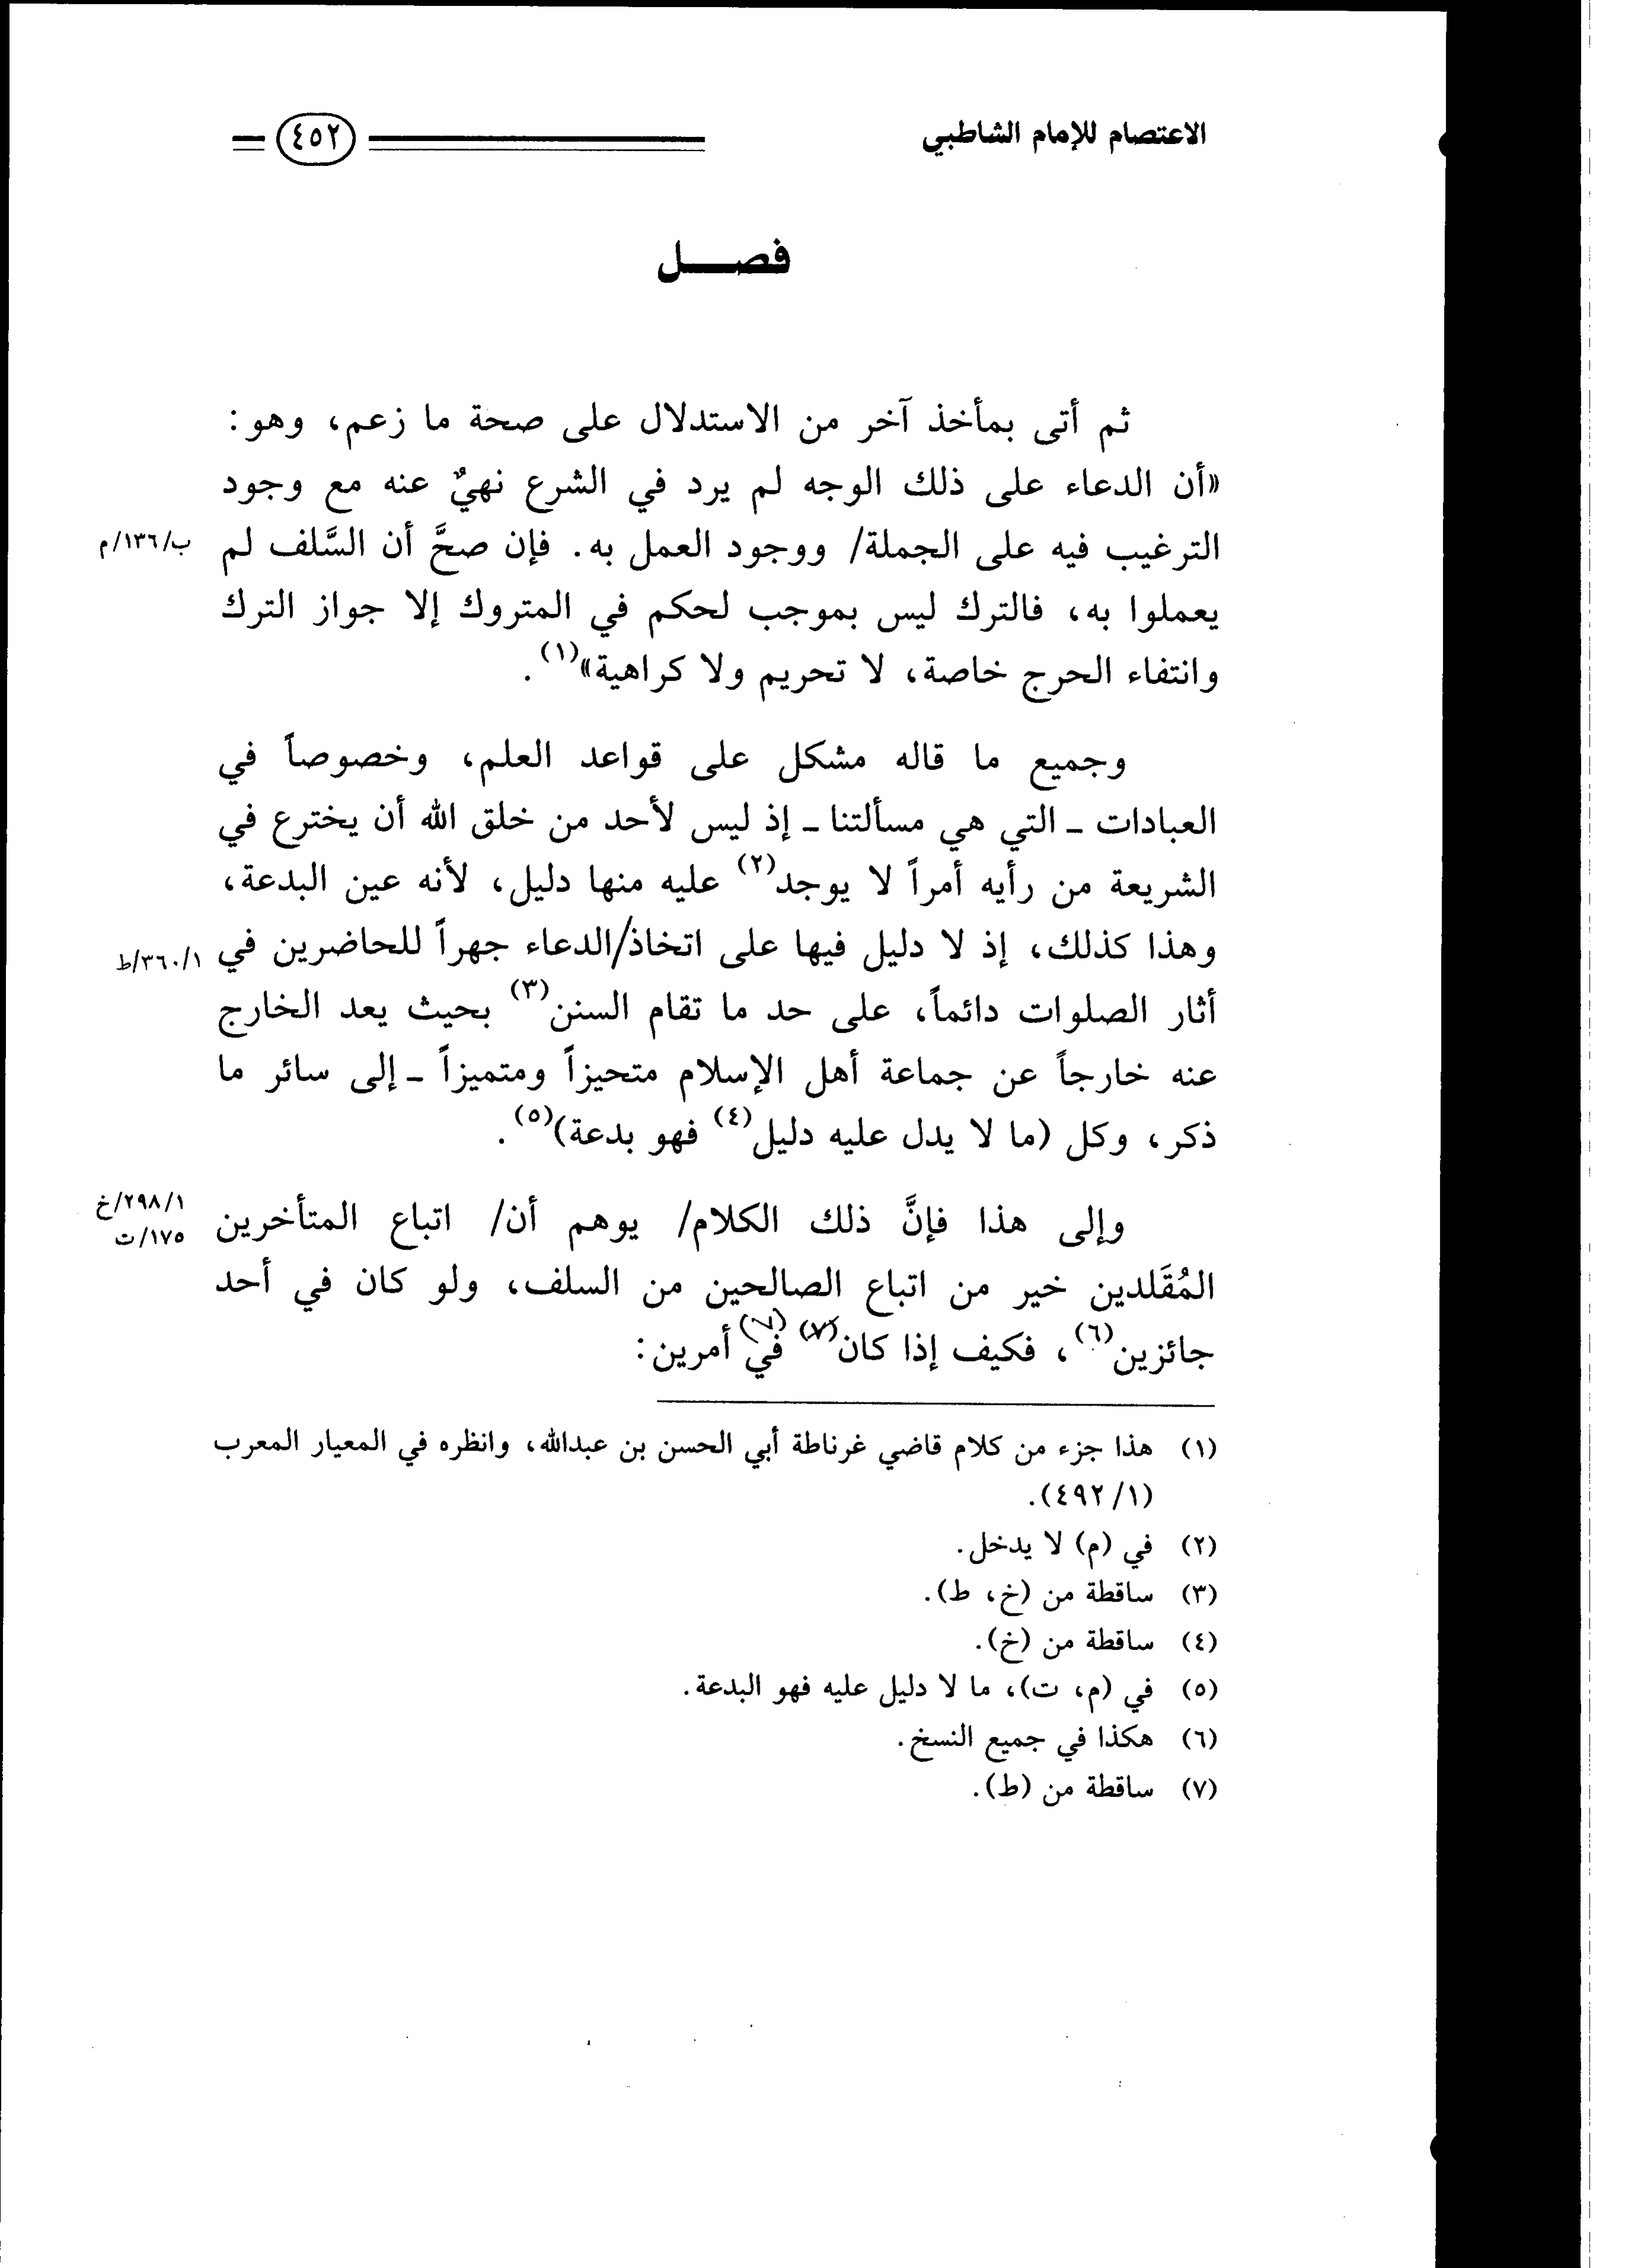 الاعتصام للإمام الشاطبي ٤٥٢
فصـــــل
ثم أتى بمأخذ آخر من الاستدلال على صحة ما زعم، وهو:
«أن الدعاء على ذلك الوجه لم يرد في الشرع نهيٌ عنه مع وجود
الترغيب فيه على الجملة/ ووجود العمل به. فإن صحَّ أن السَّلف لم ب/١٣٦/م
يعملوا به، فالترك ليس بموجب لحكم في المتروك إلا جواز الترك
وانتفاء الحرج خاصة، لا تحريم ولا كراهية»(١).
وجميع ما قاله مشكل على قواعد العلم، وخصوصاً في
العبادات ـ التي هي مسألتنا ـ إذ ليس لأحد من خلق الله أن يخترع في
الشريعة من رأيه أمراً لا يوجد(٢) عليه منها دليل، لأنه عين البدعة،
وهذا كذلك، إذ لا دليل فيها على اتخاذ/الدعاء جهراً للحاضرين في ٣٦٠/١/ط
أثار الصلوات دائماً، على حد ما تقام السنن(٣) بحيث يعد الخارج
عنه خارجاً عن جماعة أهل الإسلام متحيزاً ومتميزاً ـ إلى سائر ما
ذكر، وكل (ما لا يدل عليه دليل(٤) فهو بدعة)(٥).
وإلى هذا فإنَّ ذلك الكلام/ يوهم أن/ اتباع المتأخرين ٢٩٨/١/خ
١٧٥/ت
المُقَلدين خير من اتباع الصالحين من السلف، ولو كان في أحد
جائزين(٦)، فكيف إذا كان(٧) (٧)في أمرين:
(١) هذا جزء من كلام قاضي غرناطة أبي الحسن بن عبدالله، وانظره في المعيار المعرب
(٤٩٢/١).
(٢) في (م) لا يدخل.
(٣) ساقطة من (خ، ط).
(٤) ساقطة من (خ).
(٥) في (م، ت)، ما لا دليل عليه فهو البدعة.
(٦) هكذا في جميع النسخ.
(٧) ساقطة من (ط).